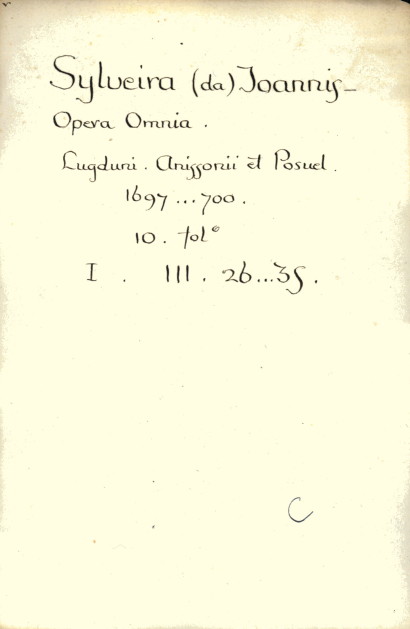 Sylveira (da) Joannis_
Opera Omnia .
Lugduni . Anissonii et Posuel .
1697...700 .
10 . folº
I . III . 26...35 .
C